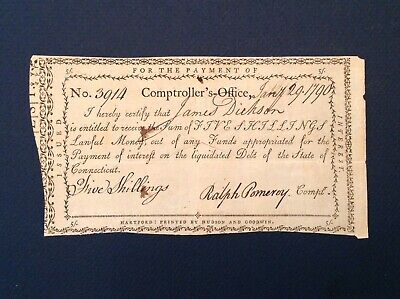 5/. FOR THE PAYMENT OF 5/.
No. 3914 Comptroller's-Office, Jany 29 1790
I hereby certify that James Dickson
is entitled to receive the Sum of FIVE SHILLINGS
Lawful Money, out of any Funds appropriated for the
Payment of interest on the liquidated Debt of the State of
Connecticut.
Five Shillings Ralph Pomeroy, Compt.
5/. HARTFORD: PRINTED BY HUDSON AND GOODWIN. 5/.
ISSUED
INTEREST.